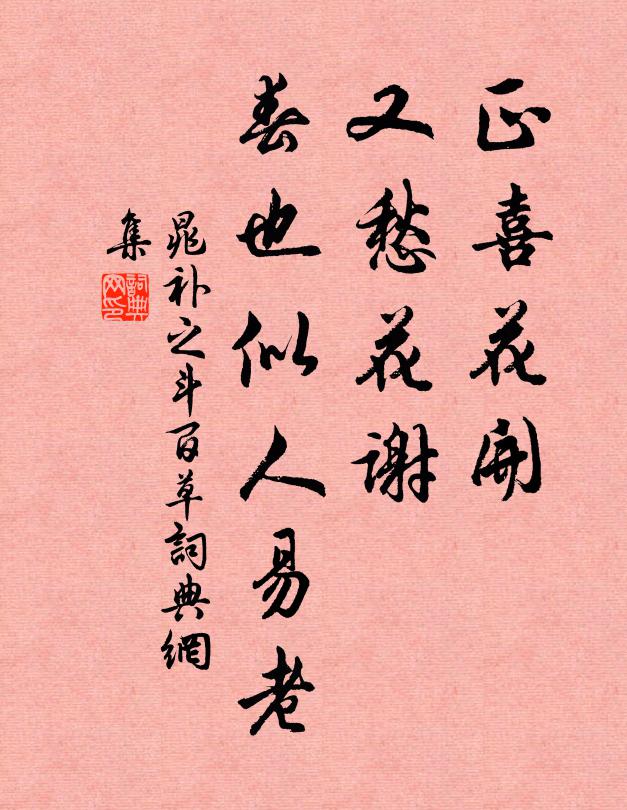 正喜花開
又愁花謝
春也似人易老
晁补之斗百草詞典網
集
詞典
网印